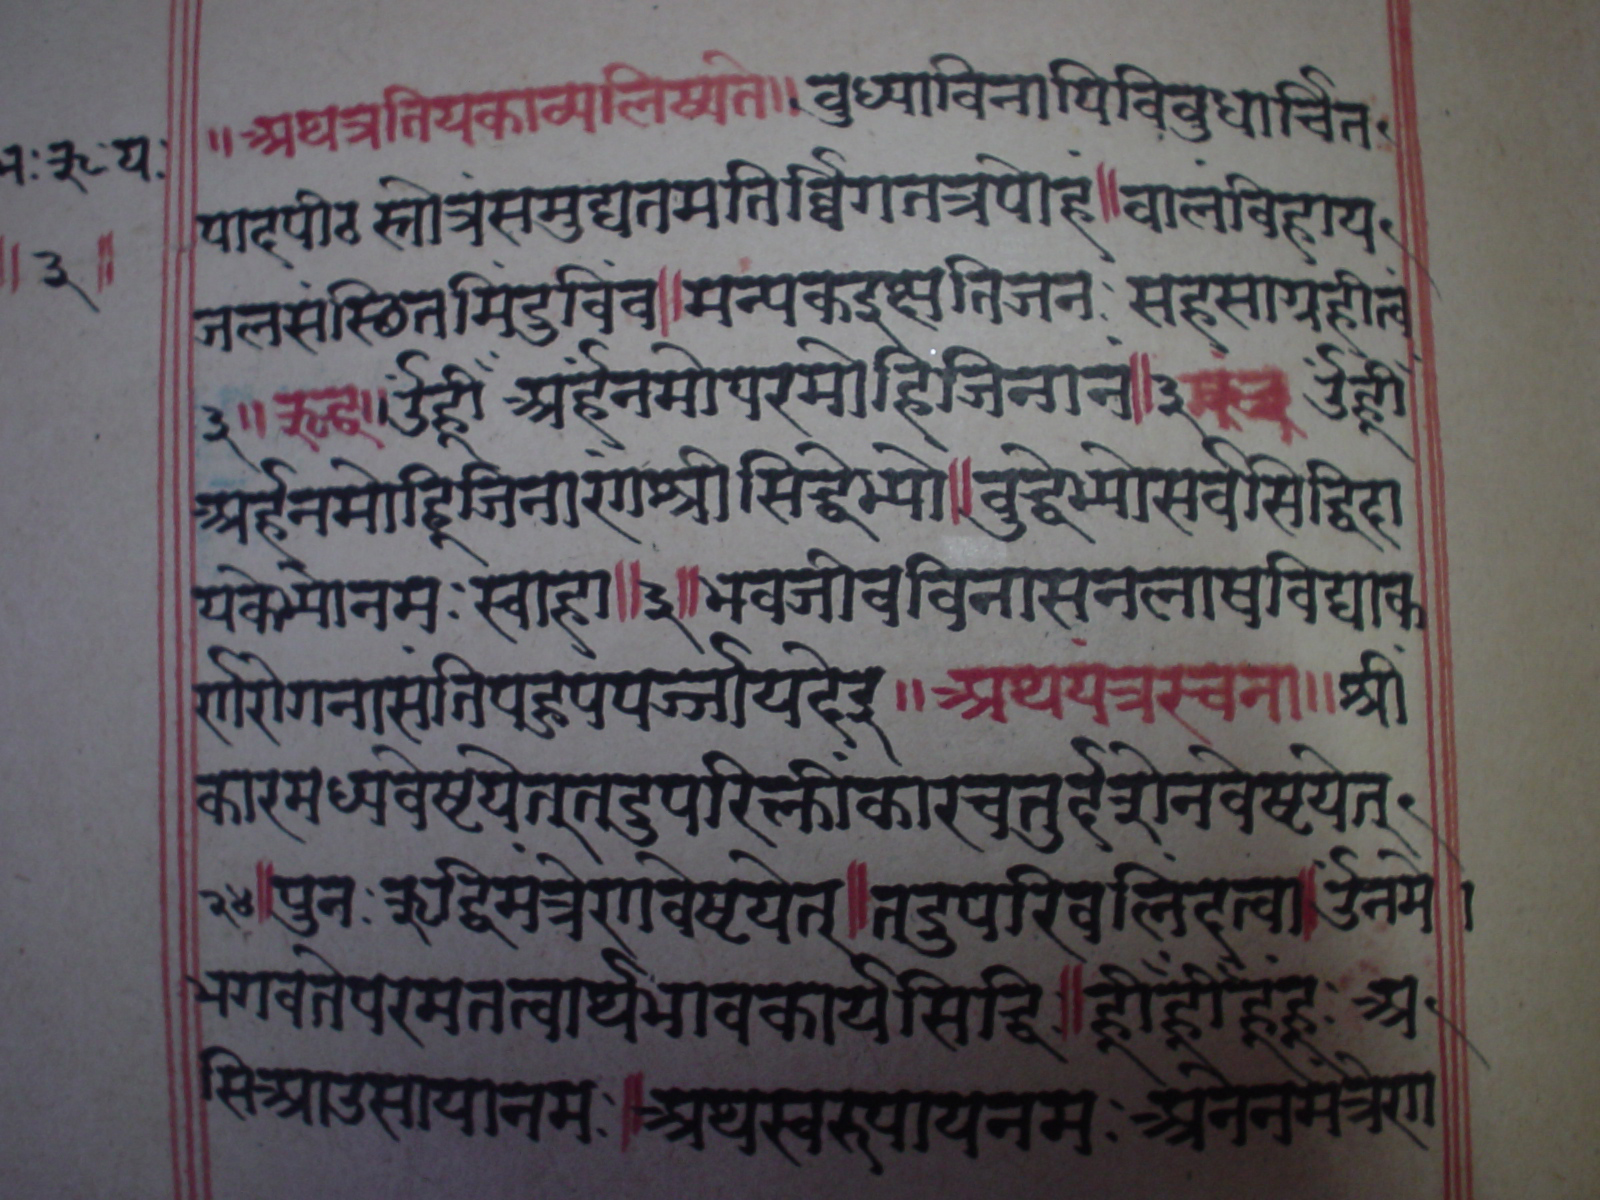 ॥ अथत्रतियकाव्यलिख्यते॥ वुध्याविनापिविवुधार्चित
भः ऋः यः
॥ ३ ॥
पादपीठ स्तोत्रंसमुद्यतमतिर्व्विगतत्रपोहं॥ वालंविहाय
जलसंस्छितमिंदुविंव॥ मन्यकइछतिजनः सहसाग्रहीत्वं
३॥ ऋद्ध॥ उँह्रीँ अर्हंनमोपरमोहिजिनानं॥ ३ मंत्र उँह्रीँ
अर्हनमोह्रिजिनारंगश्रीसिद्धेभ्यो॥ वुद्धेभ्योसर्वसिद्धिदा
यकेभ्योनमः स्वाहा॥ ३॥ भवजीवविनासनलाषविद्याक
र्णरोगनासंतिपहुपपर्ज्जायदेइ ॥ अथयंत्ररचना॥ श्रीं
कारमध्यवेष्टयेत्तदुपरिक्लींकारचतुर्दशेनवेष्टयेत्
२४॥ पुनः ऋद्धिमंत्रेणवेष्टयेत्॥ तदुपरिवलिंदत्वा॥ उँनमे।
भगवतेपरमतत्वार्थभावकार्यसिद्धि॥ ह्राँह्रीँह्रूंह्रः अ
सिआउसायानमः॥ अथस्वरूपायनमः अनेनमंत्रेण